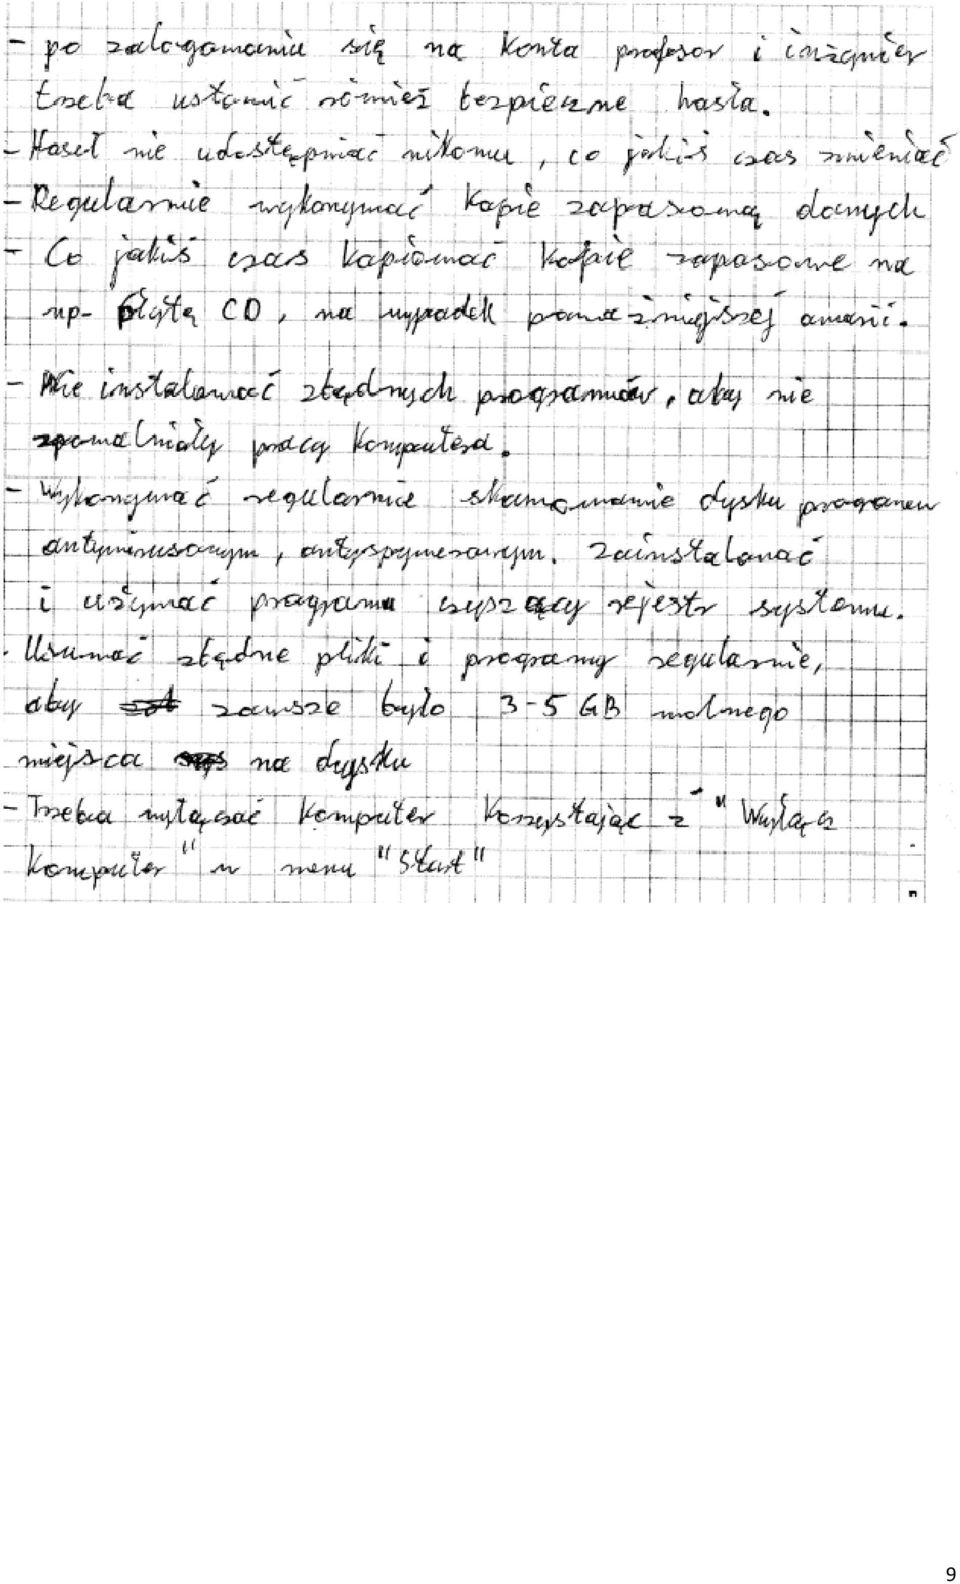 - po zalogowaniu się na konta profesor i inżynier
trzeba ustawić również bezpieczne hasła.
- Haseł nie udostępniać nikomu, co jakiś czas zmieniać
- Regularnie wykonywać kopie zapasową danych
- Co jakiś czas kopiować kopie zapasowe na
np. płytę CD, na wypadek poważniejszej awarii.
- Nie instalować zbędnych programów, aby nie
spowalniały pracy komputera.
- Wykonywać regularnie skanowanie dysku programem
antywirusowym, antyspywerowym. Zainstalować
i używać programu czyszczący rejestr systemu.
- Usuwać zbędne pliki i programy regularnie,
aby zawsze było 3-5 GB wolnego
miejsca na dysku
- Trzeba wyłączać komputer korzystając z "Wyłącz
komputer" w menu "Start"
9